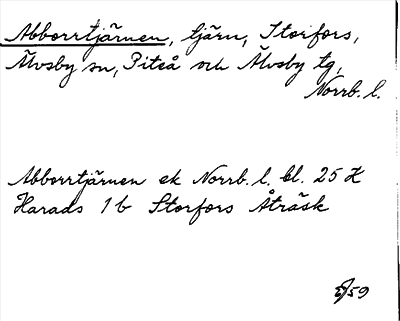 Abborrtjärnen, tjärn, Storfors,
Älvsby sn, Piteå och Älvsby tg,
Norrb. l.
Abborrtjärnen ek Norrb. l. bl. 25 H
Harads 1b Storfors Åträsk
59